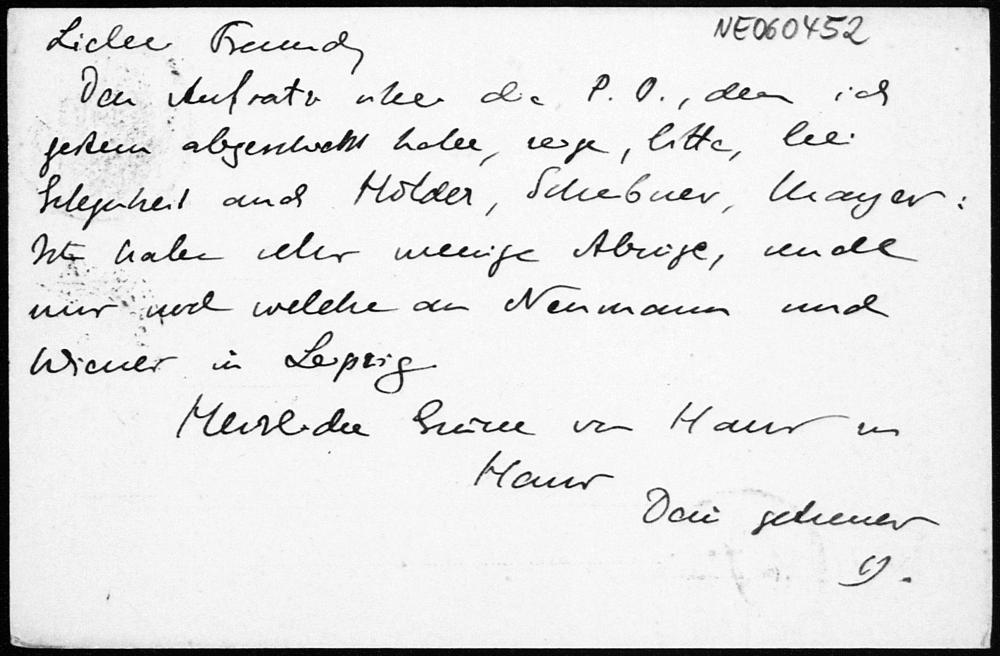 NE060452
Lieber Freund,
Den Aufsatz über die P. O., den ich
gestern abgeschickt habe, zeige, bitte, bei
Gelegenheit auch Hölder, Scheibner, Mayer:
Ich habe sehr wenige Abzüge, sende
nur noch welche an Neumann und
Wiener in Leipzig
Herzliche Grüsse von Haus zu
Haus
Dein getreuer